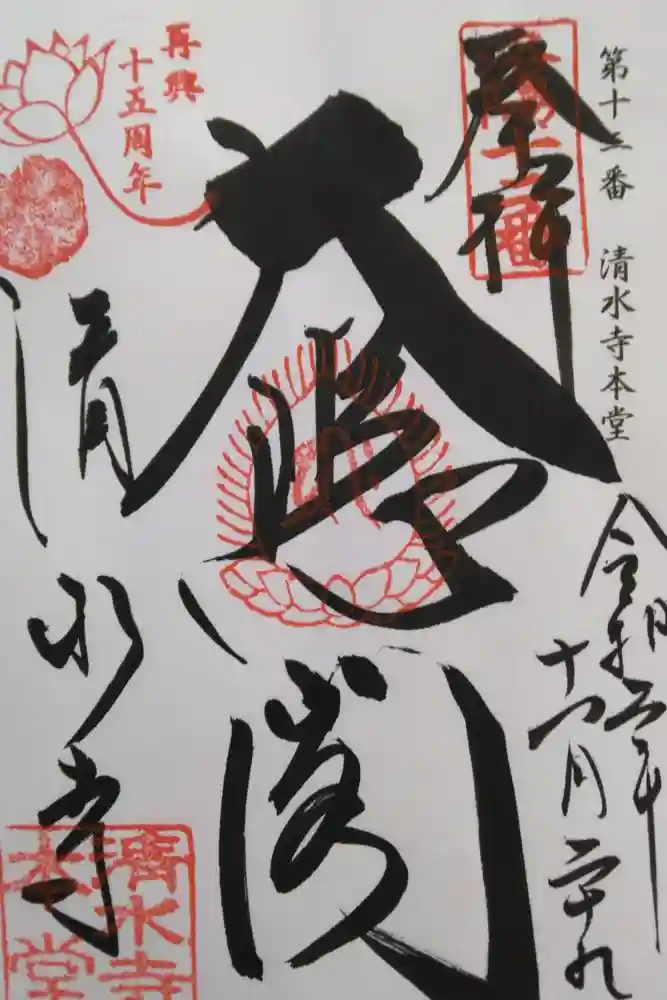 第十二番 清水寺本堂
奉拝
再興
十五周年
大悲閣
令和二年
十一月二十九
清水寺
清水寺
本堂